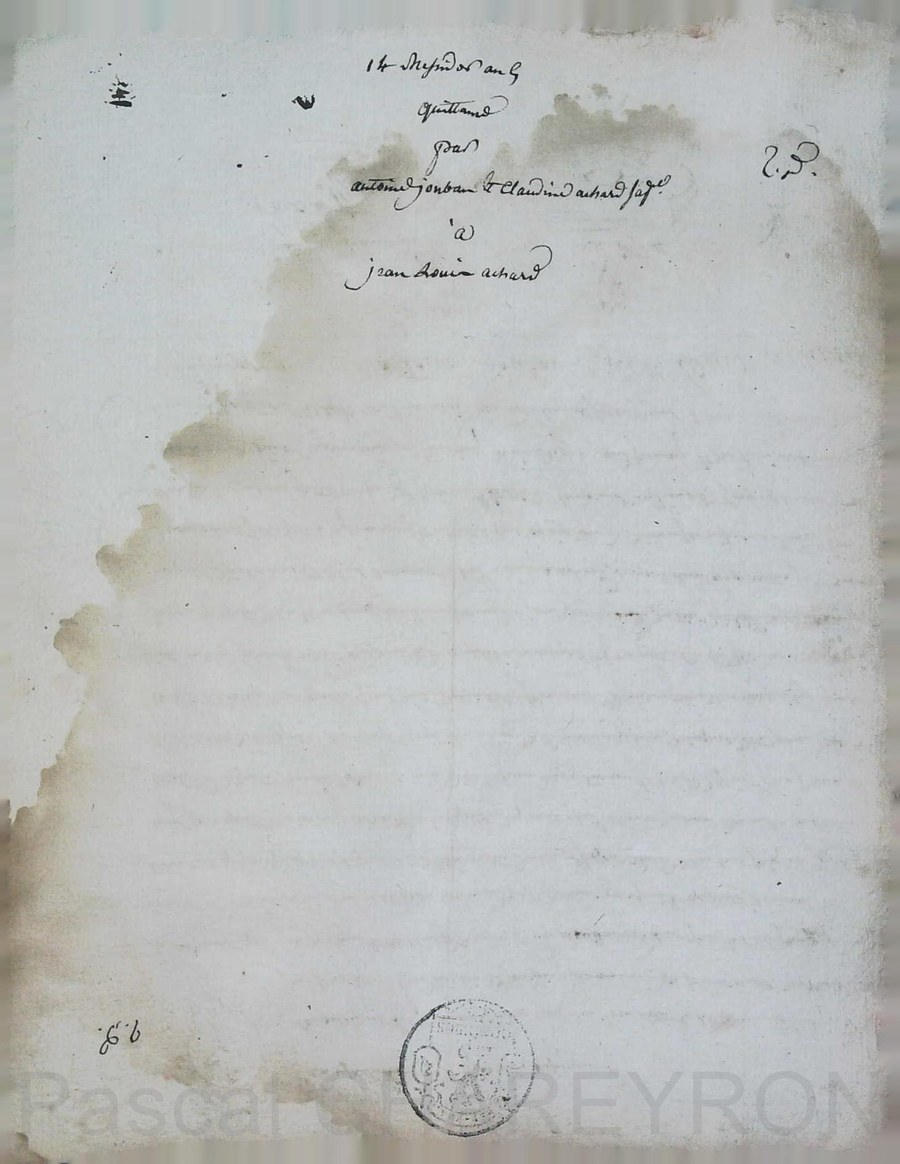 14 Messidor an 5
quittance
par
antoine jouban et Claudine achard sa fe.
à
jean Louis achard
2.3.
Pascal CHAREYRON